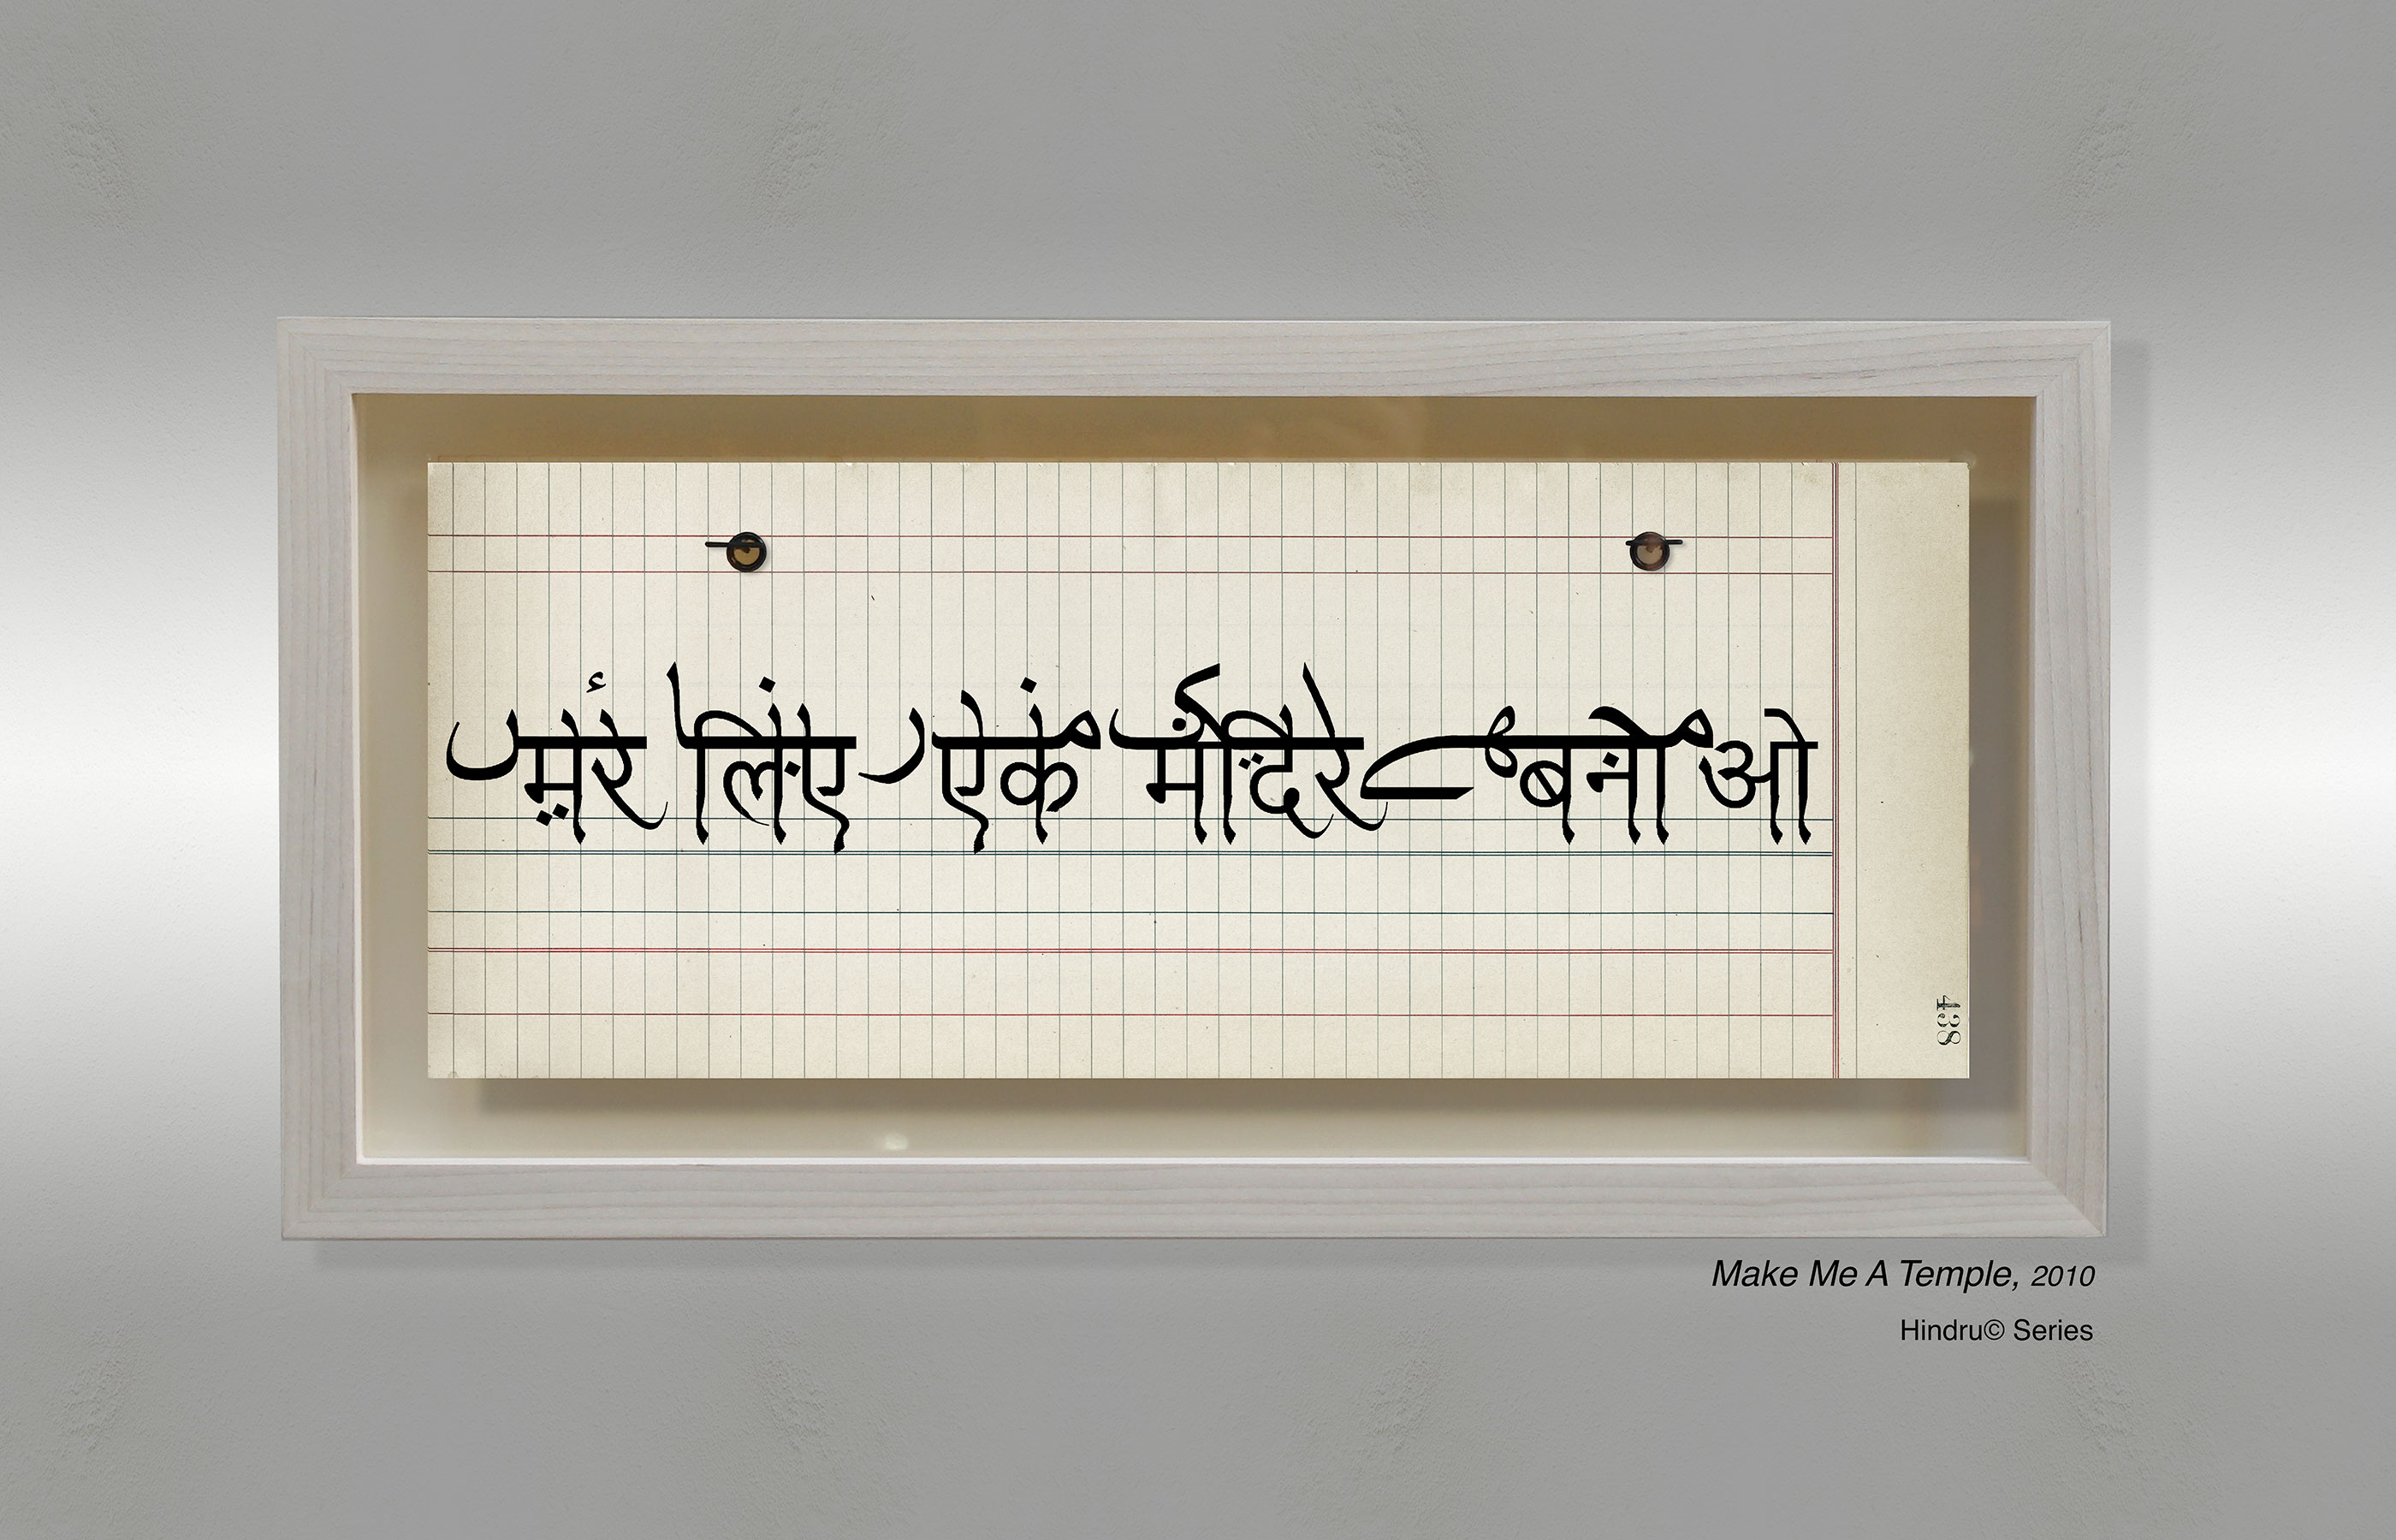 मेरे लिए एक मंदिर बनाओ
438
Make Me A Temple, 2010
Hindru© Series